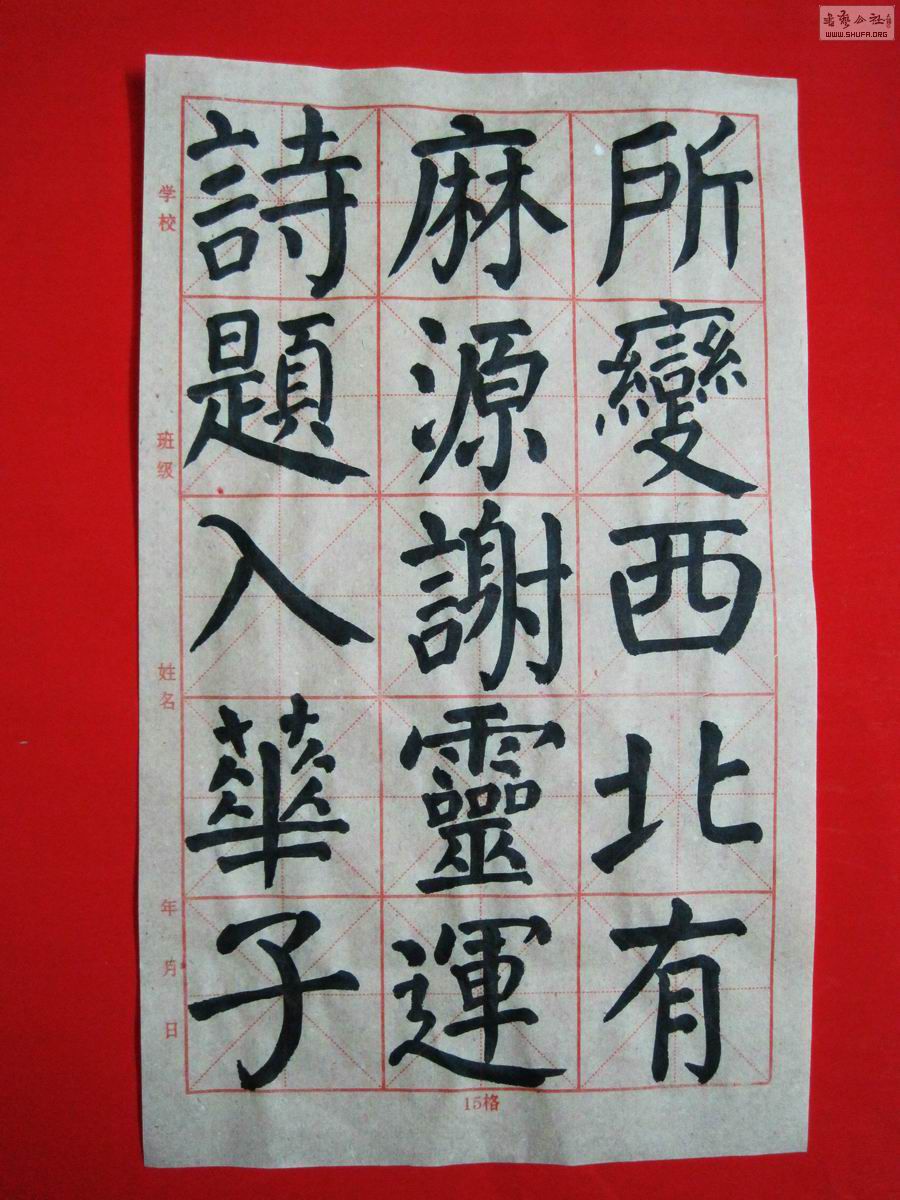 所變西北有
麻源謝靈運
詩題入華子
学校
班级
姓名
年月日
15格
WWW.SHUFA.ORG